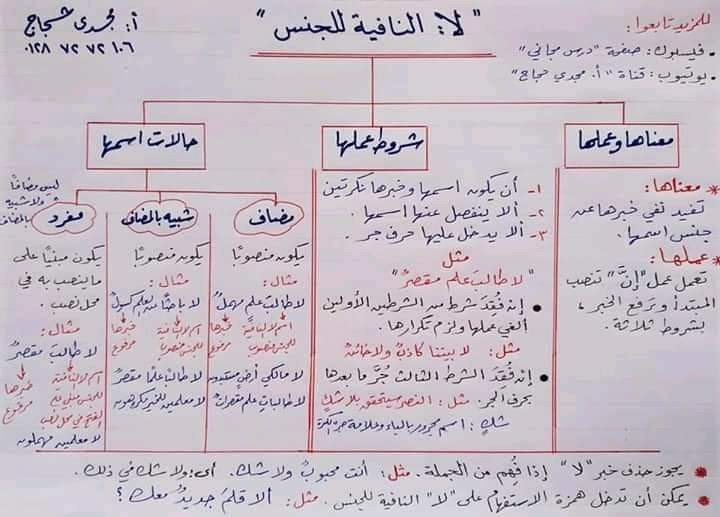 "لا: النافية للجنس"
أ: مجدي حجاج
٠١٢٨ ٧٢ ٧٢ ١٠٦
للمزيد تابعوا:
• فيسبوك: صفحة "درس مجاني"
• يوتيوب: قناة "أ. مجدي حجاج"
معناها وعملها
* معناها:
تفيد نفي خبرها عن
جنس اسمها.
* عملها:
تعمل عمل "إنَّ" تنصب
المبتدأ وترفع الخبر،
بشروط ثلاثة.
شروط عملها
١- أن يكون اسمها وخبرها نكرتين
٢- ألا ينفصل عنها اسمها.
٣- ألا يدخل عليها حرف جر.
مثل
"لا طالبَ علمٍ مقصرٌ"
• إن فُقِدَ شرط من الشرطين الأولين
أُلغي عملها ولزم تكرارها.
مثل: لا بيننا كاذبٌ ولا خائنٌ
• إن فُقِدَ الشرط الثالث جُرَّ ما بعدها
بحرف الجر. مثل: النصر سيتحقق بلا شكٍ
شكٍ: اسم مجرور بالباء وعلامة جره الكسرة
حالات اسمها
مضاف
يكون منصوبًا
مثال:
لا طالبَ علمٍ مهملٌ
اسم لا النافية للجنس منصوب
خبرها مرفوع
لا مالكي أرضٍ
لا طالباتِ علمٍ مقصراتٌ
شبيه بالمضاف
يكون منصوبًا
مثال:
لا باحثًا عن العلم كسولٌ
اسم لا النافية للجنس منصوب
خبرها مرفوع
لا طالبًا علمًا مقصرٌ
لا معلمين للخير مكروهون
ليس مضافًا
ولا شبيه
بالمضاف
مفرد
يكون مبنيًا على
ما ينصب به في
محل نصب.
مثال:
لا طالبَ مقصرٌ
اسم لا النافية
للجنس مبني على
الفتح في محل نصب
خبرها
مرفوع
لا معلمين مهملون
* يجوز حذف خبر "لا" إذا فُهِم من الجملة. مثل: أنت محبوبٌ ولا شك. أي: ولا شك في ذلك.
* يمكن أن تدخل همزة الاستفهام على "لا" النافية للجنس. مثل: ألا قلمَ جديدٌ معك؟